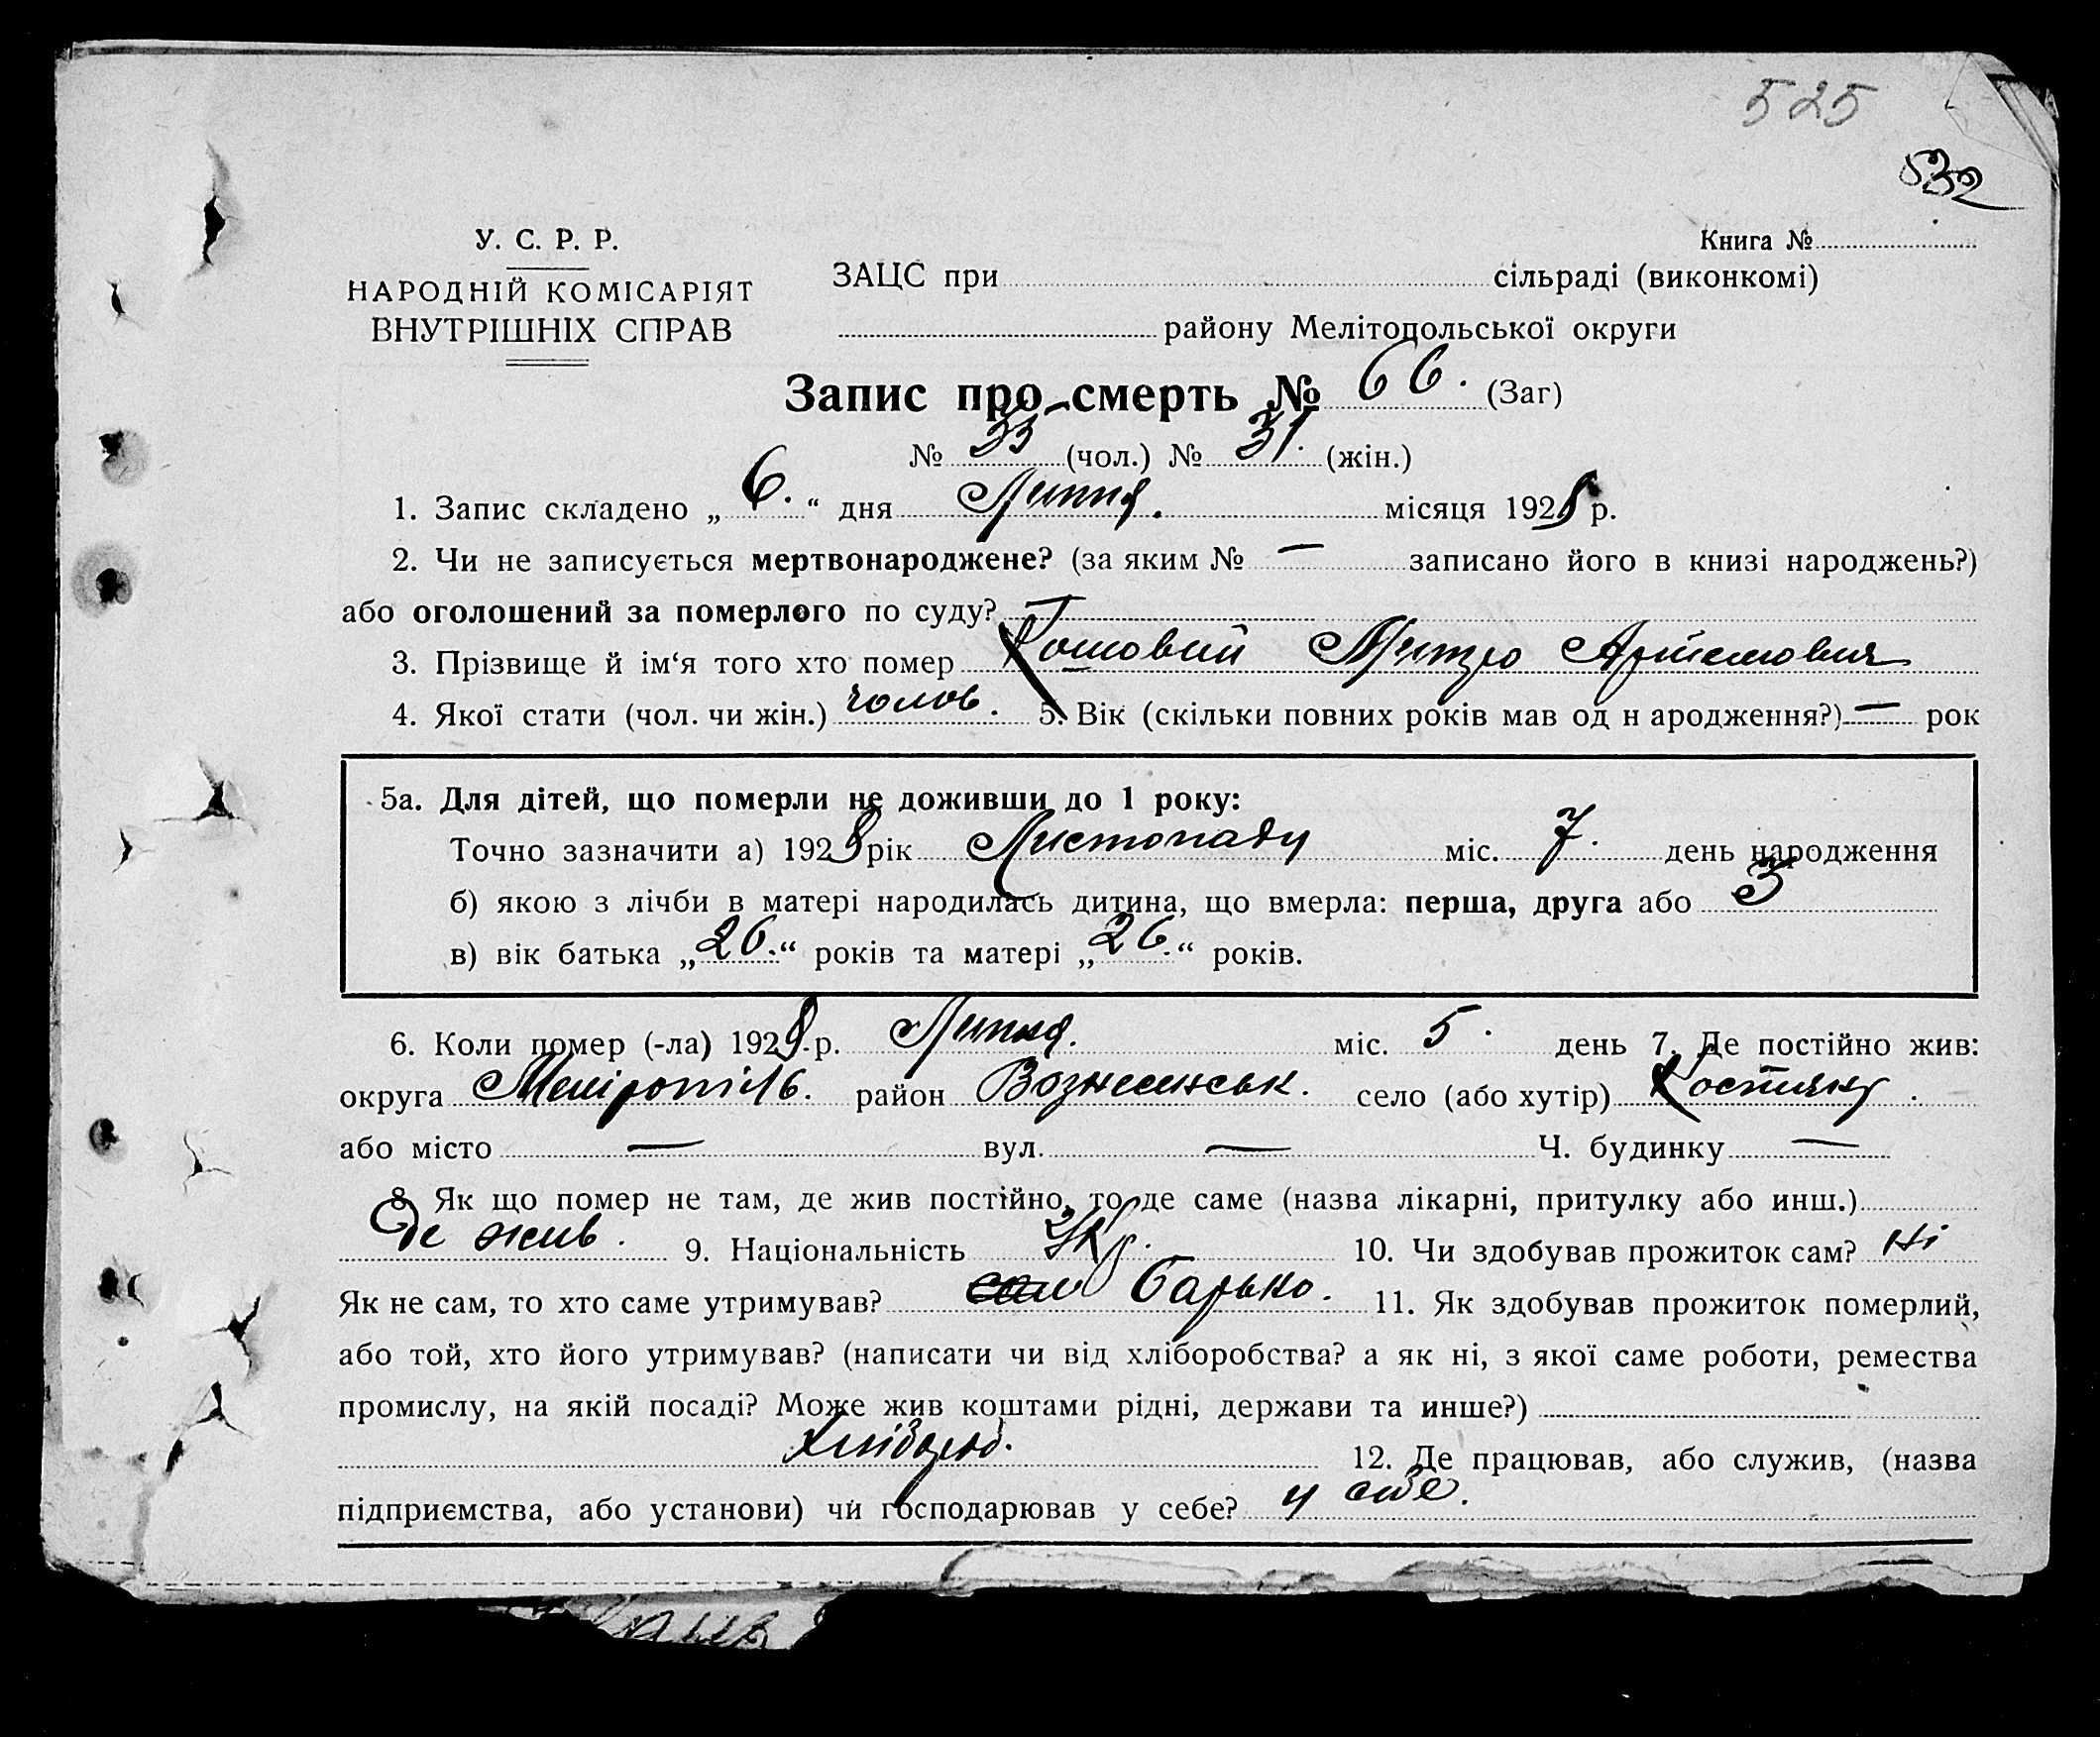 525
532
Книга №
У. С. Р. Р.
НАРОДНІЙ КОМІСАРІЯТ
ВНУТРІШНІХ СПРАВ
ЗАЦС при сільраді (виконкомі)
району Мелітопольської округи
Запис про смерть № 66. (Заг)
№ 33 (чол.) № 31. (жін.)
1. Запис складено „ 6. “ дня Липня. місяця 1928 р.
2. Чи не записується мертвонароджене? (за яким № — записано його в книзі народжень?)
або оголошений за померлого по суду? —
3. Прізвище й ім‘я того хто помер Кошовий Митро Артемович
4. Якої стати (чол. чи жін.) чолов. 5. Вік (скільки повних років мав од н ародження?) — рок
5а. Для дітей, що померли не доживши до 1 року:
Точно зазначити а) 1928 рік Листопаду міс. 7. день народження
б) якою з лічби в матері народилась дитина, що вмерла: перша, друга або 3
в) вік батька „26.“ років та матері „26.“ років.
6. Коли помер (-ла) 1928 р. Липня. міс. 5. день 7. Де постійно жив:
округа район Вознесенськ. село (або хутір)
або місто — вул. — Ч. будинку —
8. Як що помер не там, де жив постійно, то де саме (назва лікарні, притулку або инш.)
де жив. 9. Національність Укр. 10. Чи здобував прожиток сам? ні
Як не сам, то хто саме утримував? сам батько. 11. Як здобував прожиток померлий,
або той, хто його утримував? (написати чи від хліборобства? а як ні, з якої саме роботи, ремества
промислу, на якій посаді? Може жив коштами рідні, держави та инше?)
Хлібороб. 12. Де працював, або служив, (назва
підприємства, або установи) чи господарював у себе? у себе.